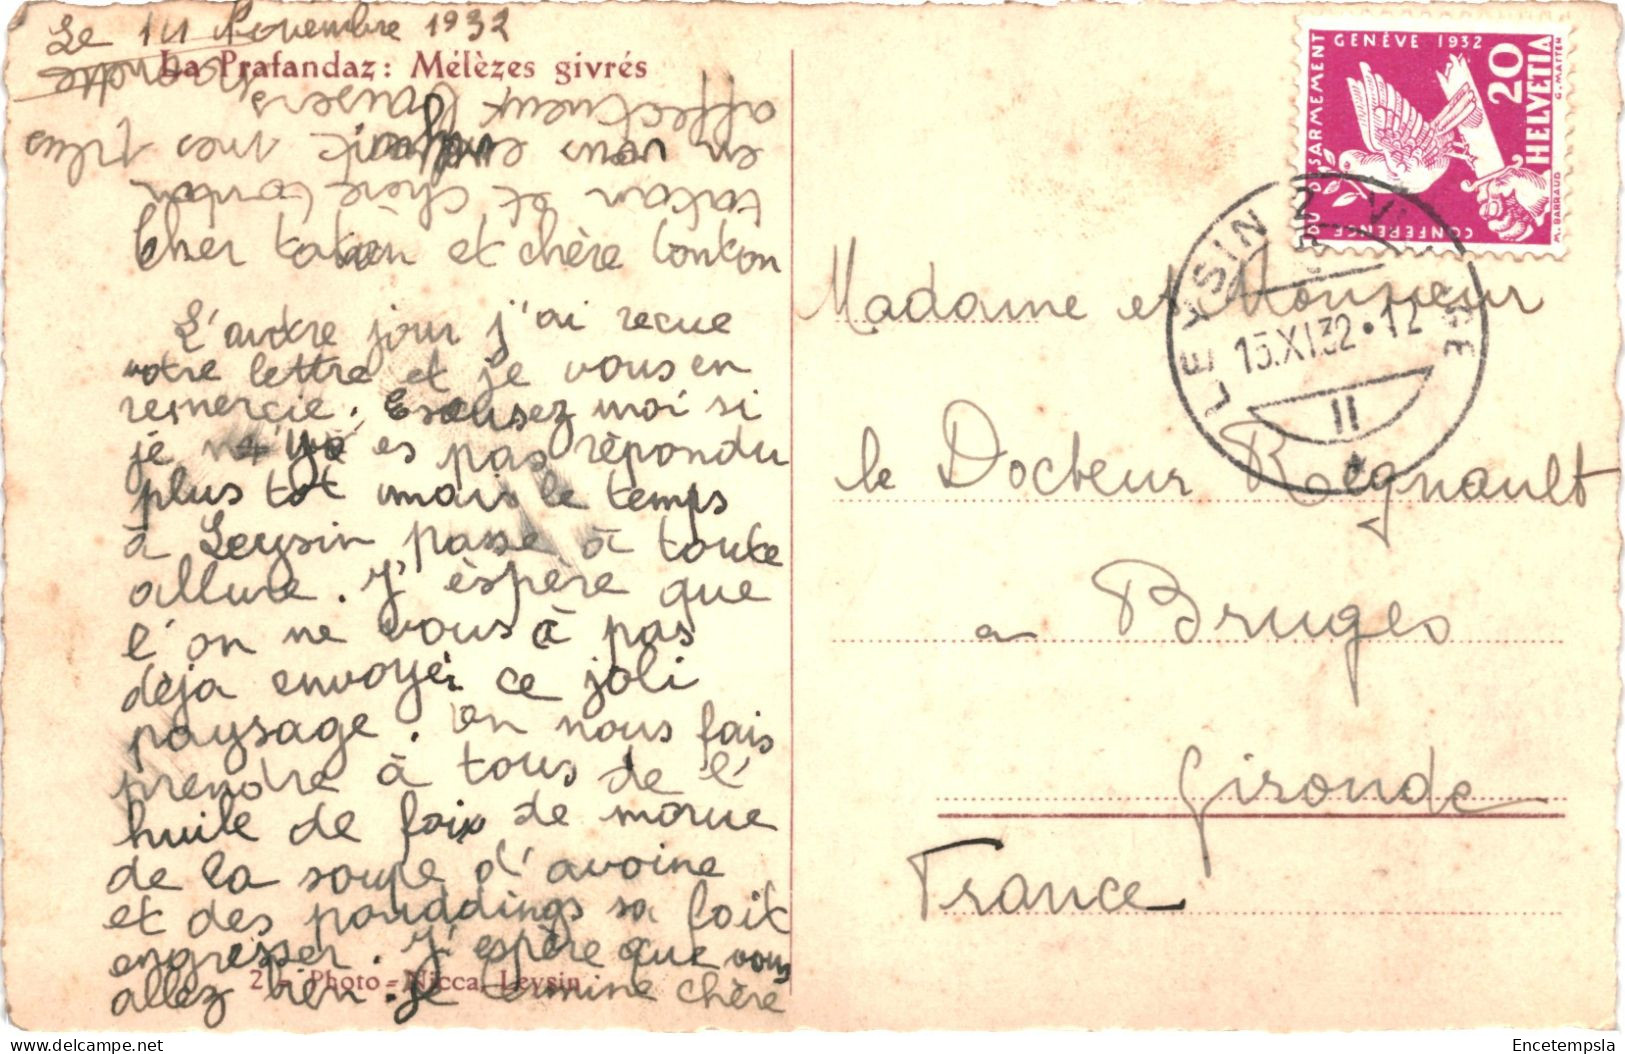 Le 14 Novembre 1932
La Prafandaz: Mélèzes givrés
Cher tonton et chère tonton
L'autre jour j'ai recue
votre lettre et je vous en
remercie. Escusez moi si
je n'yé es pas répondu
plus tot mais le temps
à Leysin passe à toute
allure. J'èspère que
l'on ne vous à pas
déja envoyé ce joli
paysage. On nous fais
prendre à tous de l'
huile de foix de morue
de la soupe d'avoine
et des pouddings sa foit
engresser. J'espère que vous
allez bien. Je termine chère
tonton et chère tonton
en vous envoyant mes plus
affectueux baisers
2 - Photo-Nicca, Leysin
CONFÉRENCE DU DÉSARMEMENT GENÈVE 1932
20
HELVETIA
M. BARRAUD
G. MATTER
LEYSIN
15.XI.32.12
II
Madame et Monsieur
le Docteur Regnault
a Bruges
Gironde
France
Encetempsla